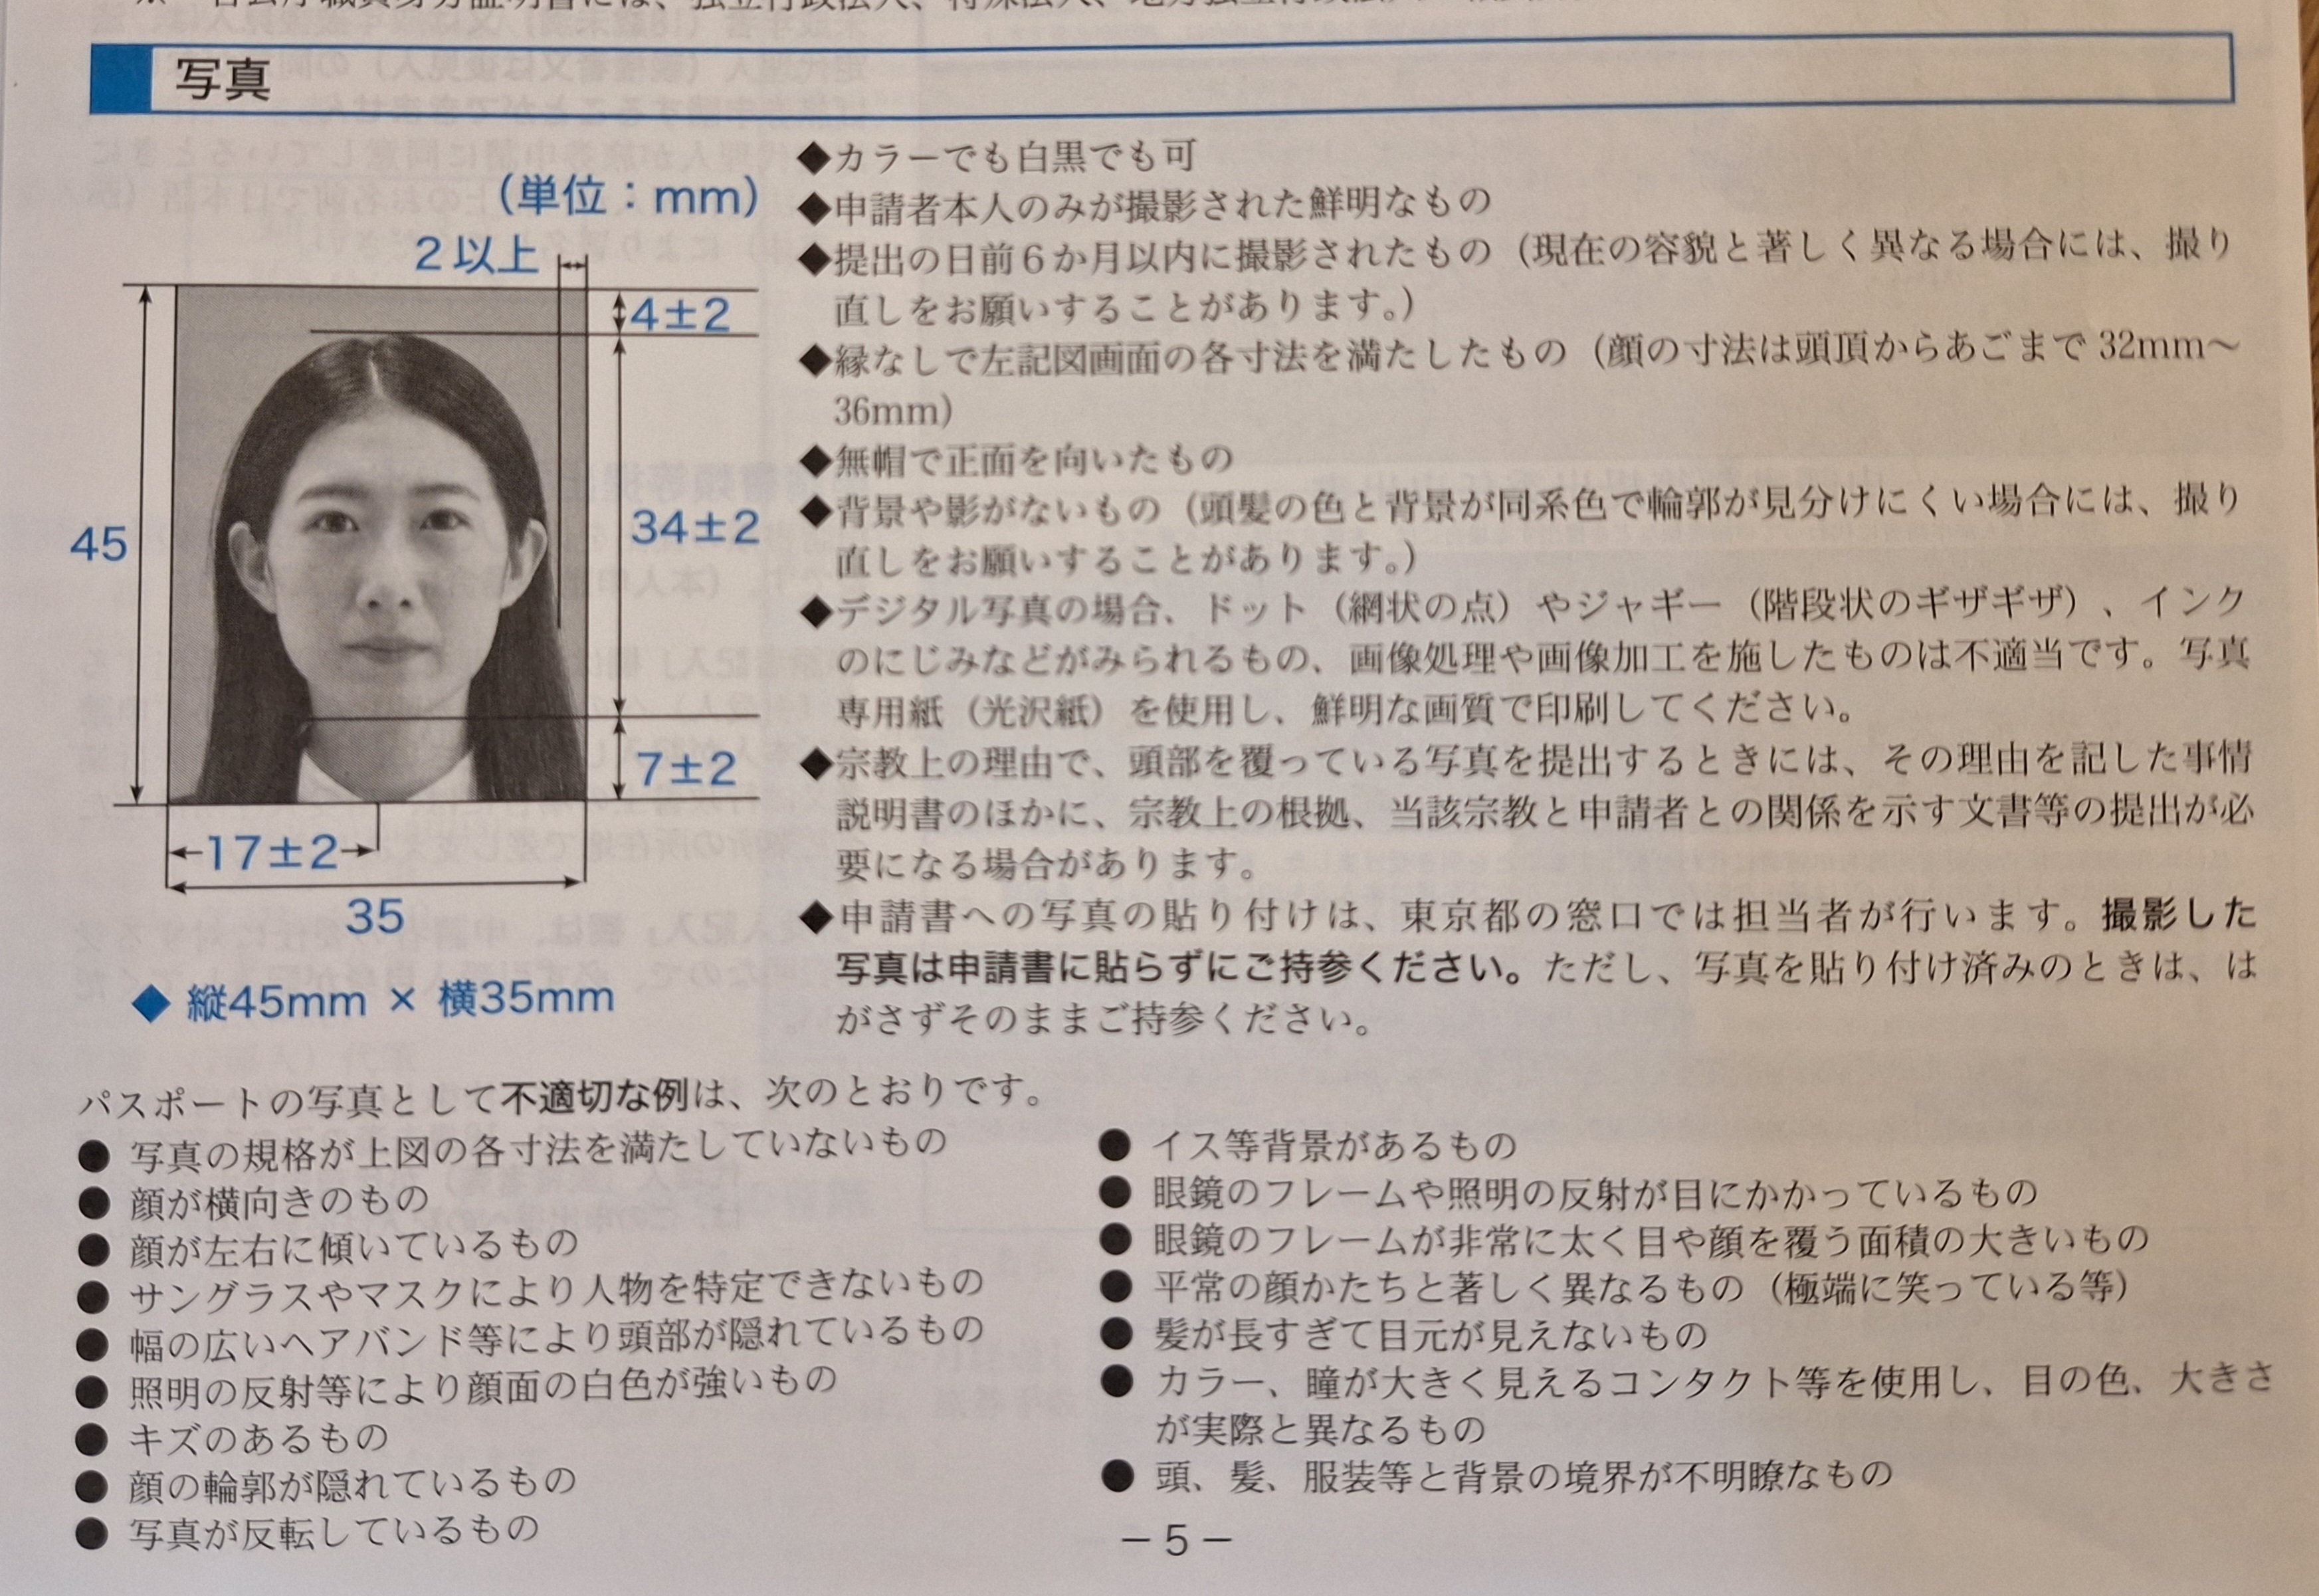 写真
(単位：mm)
2以上
4±2
45
34±2
7±2
17±2
35
◆ 縦45mm × 横35mm
◆カラーでも白黒でも可
◆申請者本人のみが撮影された鮮明なもの
◆提出の日前６か月以内に撮影されたもの（現在の容貌と著しく異なる場合には、撮り
直しをお願いすることがあります。）
◆縁なしで左記図画面の各寸法を満たしたもの（顔の寸法は頭頂からあごまで 32mm～
36mm）
◆無帽で正面を向いたもの
◆背景や影がないもの（頭髪の色と背景が同系色で輪郭が見分けにくい場合には、撮り
直しをお願いすることがあります。）
◆デジタル写真の場合、ドット（網状の点）やジャギー（階段状のギザギザ）、インク
のにじみなどがみられるもの、画像処理や画像加工を施したものは不適当です。写真
専用紙（光沢紙）を使用し、鮮明な画質で印刷してください。
◆宗教上の理由で、頭部を覆っている写真を提出するときには、その理由を記した事情
説明書のほかに、宗教上の根拠、当該宗教と申請者との関係を示す文書等の提出が必
要になる場合があります。
◆申請書への写真の貼り付けは、東京都の窓口では担当者が行います。撮影した
写真は申請書に貼らずにご持参ください。ただし、写真を貼り付け済みのときは、は
がさずそのままご持参ください。
パスポートの写真として不適切な例は、次のとおりです。
● 写真の規格が上図の各寸法を満たしていないもの
● 顔が横向きのもの
● 顔が左右に傾いているもの
● サングラスやマスクにより人物を特定できないもの
● 幅の広いヘアバンド等により頭部が隠れているもの
● 照明の反射等により顔面の白色が強いもの
● キズのあるもの
● 顔の輪郭が隠れているもの
● 写真が反転しているもの
● イス等背景があるもの
● 眼鏡のフレームや照明の反射が目にかかっているもの
● 眼鏡のフレームが非常に太く目や顔を覆う面積の大きいもの
● 平常の顔かたちと著しく異なるもの（極端に笑っている等）
● 髪が長すぎて目元が見えないもの
● カラー、瞳が大きく見えるコンタクト等を使用し、目の色、大きさ
が実際と異なるもの
● 頭、髪、服装等と背景の境界が不明瞭なもの
－5－